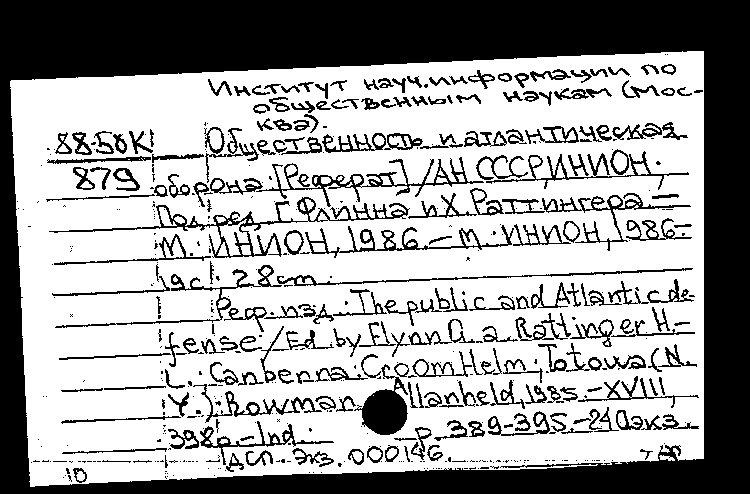 Институт науч.информации по
общественным наукам (Мос-
ква).
88-50К Общественность и атлантическая
879 оборона: [Реферат] / АН СССР, ИНИОН;
Под ред. Г. Флинна и Х. Раттингера.—
М.: ИНИОН, 1986.— М.: ИНИОН, 1986.—
19с.; 28cm.
Реф. изд.: The public and Atlantic de-
fense / Ed by Flynn G. a. Rattinger H.—
L.: Canberra: Croom Helm; Totowa (N.
Y.): Rowman Allanheld, 1985.—XVIII,
398p.—Ind.: p. 389-395.—240экз.
ДСП. Экз. 000146.
10